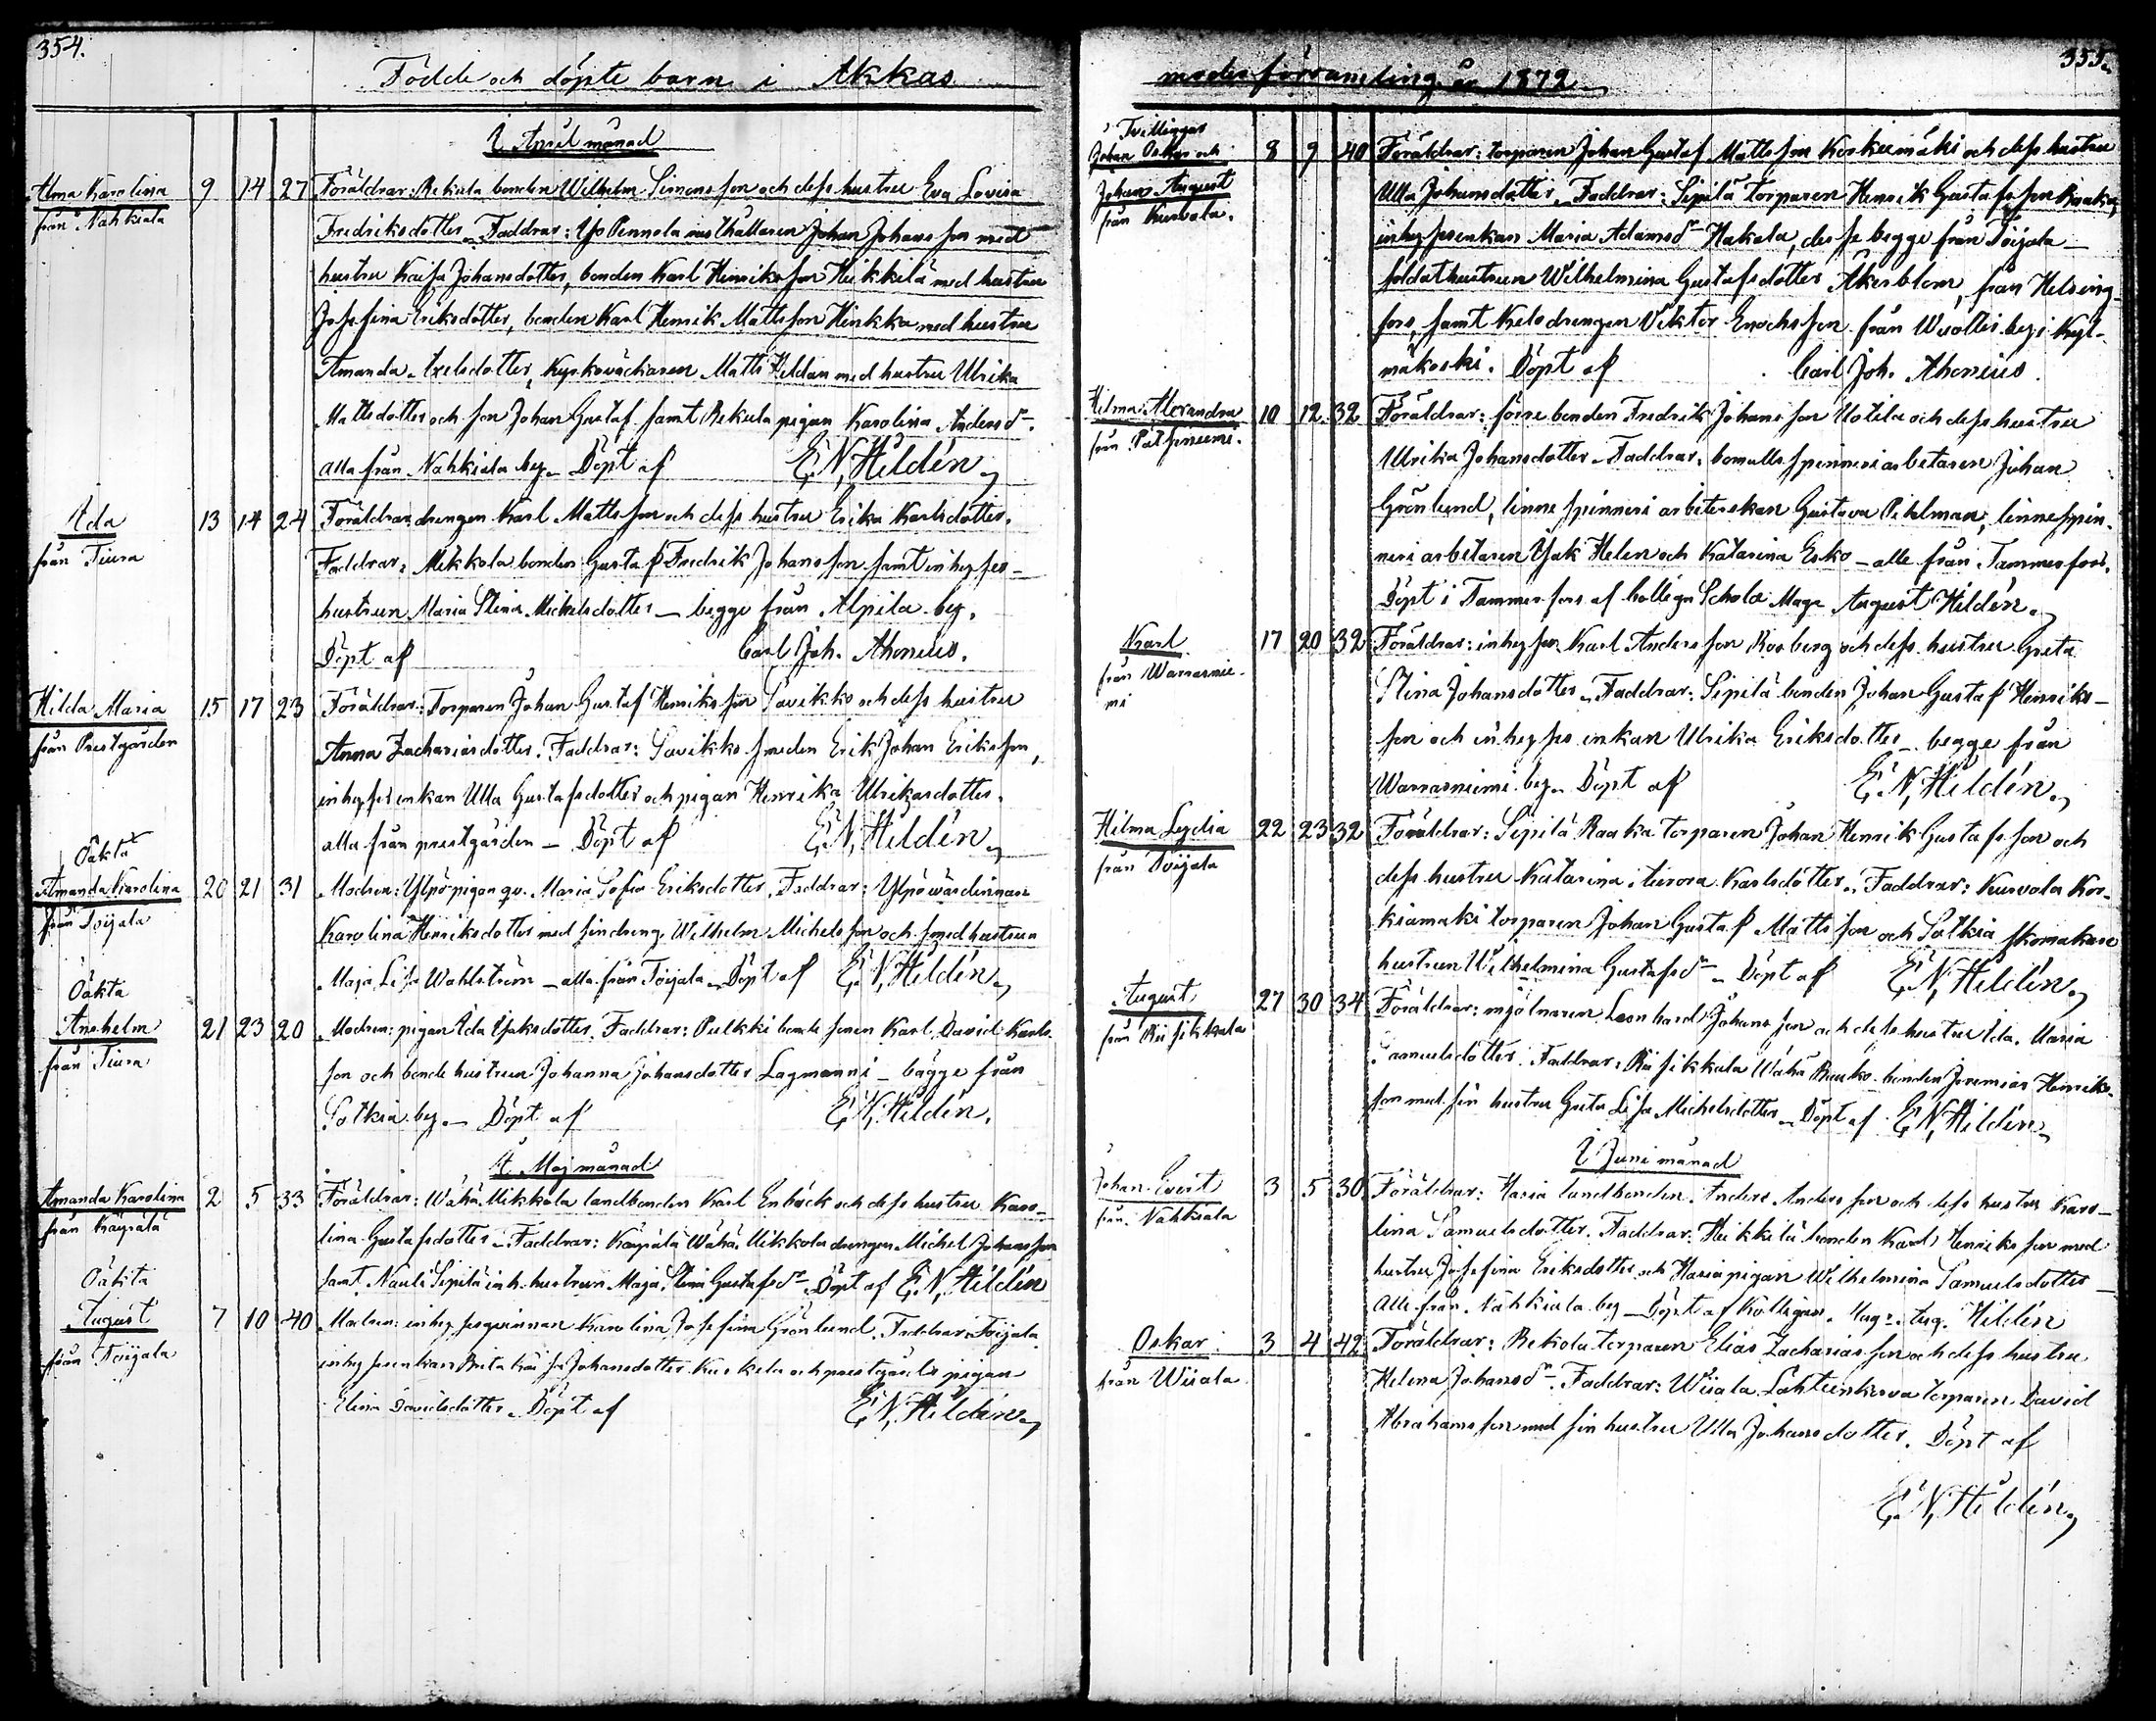 354.
Födde och döpte barn i Akkas
I April månad
Alma Karolina 9 14 27 Föräldrar: Rekula bonden Wilhelm Simonsson och dess hustru Eva Lovisa
från Nahkiala
Fredriksdotter. Faddrar: Yso Pennola rusthållaren Johan Johansson med
hustru Kaisa Johansdotter, bonden Karl Henriksson Heikkilä med hustru
Josefina Eriksdotter, bonden Karl Henrik Mattsson Hinkka med hustru
Amanda Axelsdotter, Kyrkoväktaren Matts Heldan med hustru Ulrika
Mattsdotter och son Johan Gustaf samt Rekula pigan Karolina Andersdr.
alla från Nahkiala by. Döpt af E. N. Hildén
Ada 13 14 24 Föräldrar: drengen Karl Mattsson och dess hustru Erika Karlsdotter.
från Tiura
Faddrar: Mikkola bonden Gustaf Fredrik Johansson samt inhyses-
hustrun Maria Stina Michelsdotter — begge från Alpila by.
Döpt af Carl Joh. Ahonius.
Hilda Maria 15 17 23 Föräldrar: Torparen Johan Gustaf Henriksson Savikko och dess hustru
från Prestgården
Anna Zachariasdotter. Faddrar: Savikko smeden Erik Johan Eriksson,
inhysesenkan Ulla Gustafsdotter och pigan Henrika Ulrikasdotter.
alla från prestgården — Döpt af E. N. Hildén
Oäkta
Amanda Karolina 20 21 31 Modren: Ylpö pigan qv. Maria Sofia Eriksdotter. Faddrar: Ylpö wärdinnan
från Toijala
Karolina Henriksdotter med sin dreng Wilhelm Michelsson och smedhustrun
Maja Lisa Wahlström — alla från Toijala. Döpt af E. N. Hildén
Oäkta
Anshelm 21 23 20 Modren: pigan Ida Isaksdotter. Faddrar: Pulkki bonde sonen Karl David Karls-
från Tiura
son och bonde hustrun Johanna Johansdotter Lagmanni — bägge från
Sotkia by. — Döpt af E. N. Hildén.
I Maj månad
Amanda Karolina 2 5 33 Föräldrar: Wähä Mikkola landbonden Karl Enbäck och dess hustru Karo-
från Käyrälä
lina Gustafsdotter. Faddrar: Käyrälä Wähä Mikkola drengen Michel Johansson
samt Nauli Sipilä inh. hustrun Maja Stina Gustafsdr. Döpt af E. N. Hildén
Oäkta
August 7 10 40 Modren: inhysesqvinnan Karolina Josefina Grönlund. Faddrar: Toijala
från Toijala
inhysesenkan Johansdotter och prestgårds pigan
Elina Davidsdotter. Döpt af E. N. Hildén
355.
moderförsamling år 1872
Tvillingar
Johan Oskar och 8 9 40 Föräldrar: torparen Johan Gustaf Mattsson Korkiamäki och dess hustru
Johan August
från Kurvola.
Ulla Johansdotter. Faddrar: Sipilä torparen Henrik Gustafsson Raaka,
inhysesenkan Maria Adamsdr Hakala, desse begge från Toijala —
soldathustrun Wilhelmina Gustafsdotter Åkerblom, från Helsing-
fors, samt Kelo drengen Viktor Enochsson från by i Kyl-
mäkoski. Döpt af Carl Joh. Ahonius.
Hilma Alexandra 10 12 32 Föräldrar: förre bonden Fredrik Johansson Uotila och dess hustru
från
Ulrika Johansdotter. Faddrar: bomullsspinneriarbetaren Johan
Grönlund, linnespinneri arbeterskan Gustava Pihlman, linnespin-
neri arbetaren Isak Helen och Katarina Esko — alle från Tammerfors.
Döpt i Tammerfors af Collega Schola Mag. August Hildén.
Karl 17 20 32 Föräldrar: inhyses Karl Andersson Rosberg och dess hustru Greta
från Warrasnie-
mi
Stina Johansdotter. Faddrar: Sipilä bonden Johan Gustaf Henriks-
son och inhysesenkan Ulrika Eriksdotter — begge från
Warrasniemi by. Döpt af E. N. Hildén.
Hilma Lydia 22 23 32 Föräldrar: Sipilä Raaka torparen Johan Henrik Gustafsson och
från Toijala
dess hustru Katarina Aurora Karlsdotter. Faddrar: Kurvola Kor-
kiamäki torparen Johan Gustaf Mattsson och Sotkia skomakare
hustrun Wilhelmina Gustafsdr — Döpt af E. N. Hildén.
August 27 30 34 Föräldrar: mjölnaren Leonhard Johansson och dess hustru Ida Maria
från Riisikkala
Samuelsdotter. Faddrar: Riisikkala Wähä Rauko bonden Jeremias Henriks-
son med sin hustru Greta Lisa Michelsdotter. Döpt af E. N. Hildén.
I Juni månad
Johan Evert 3 5 30 Föräldrar: Haria landbonden Anders Andersson och dess hustru Karo-
från Nahkiala
lina Samuelsdotter. Faddrar: Heikkilä bonden Karl Henriksson med
hustru Josefina Eriksdotter och Haria pigan Wilhelmina Samuelsdotter
Alle från Nahkiala by — Döpt af Kollegan Mag. Aug. Hildén
Oskar 3 4 42 Föräldrar: Rekola torparen Elias Zachariasson och dess hustru
från Wiiala
Helena Johansdr. Faddrar: Wiiala Lahteenkorva torparen David
Abrahamsson med sin hustru Ulla Johansdotter. Döpt af
E. N. Hildén